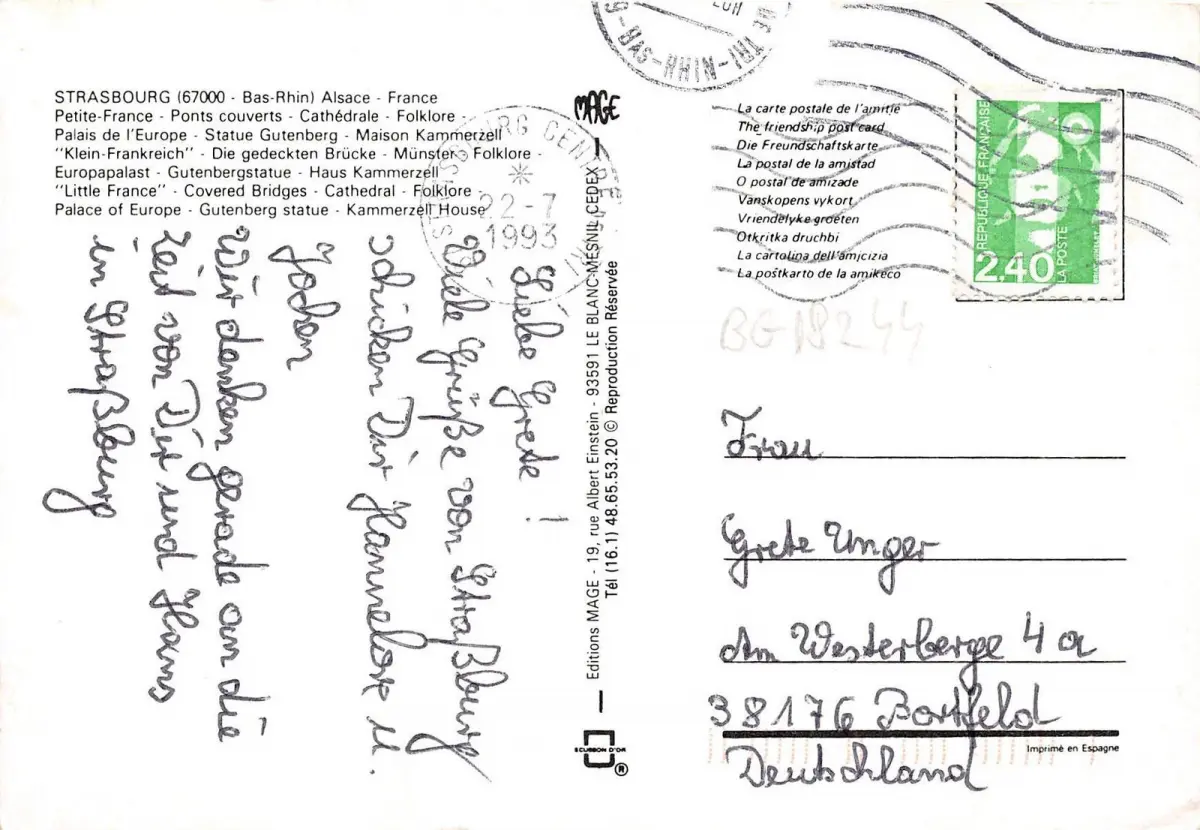 STRASBOURG (67000 - Bas-Rhin) Alsace - France
Petite-France - Ponts couverts - Cathédrale - Folklore -
Palais de l'Europe - Statue Gutenberg - Maison Kammerzell
"Klein-Frankreich" - Die gedeckten Brücke - Münster - Folklore -
Europapalast - Gutenbergstatue - Haus Kammerzell
"Little France" - Covered Bridges - Cathedral - Folklore -
Palace of Europe - Gutenberg statue - Kammerzell House
Liebe Grete !
Viele Grüße von Straßburg
schicken Dir Hannelore u.
Jochen
Wir denken gerade an die
Zeit von Dir und Hans
in Straßburg
MAGE
Editions MAGE - 19, rue Albert Einstein - 93591 LE BLANC-MESNIL CEDEX
Tél (16.1) 48.65.53.20 © Reproduction Réservée
ECUSSON D'OR
®
22-7
1993
DE TRI
BAS-RHIN
La carte postale de l'amitié
The friendship post card
Die Freundschaftskarte
La postal de la amistad
O postal de amizade
Vanskopens vykort
Vriendelyke groeten
Otkritka druchbi
La cartolina dell'amicizia
La poŝtkarto de la amikeco
REPUBLIQUE FRANÇAISE
2.40
LA POSTE
BE18244
Frau
Grete Unger
Am Westerberge 4 a
38176 Bortfeld
Deutschland
Imprimé en Espagne